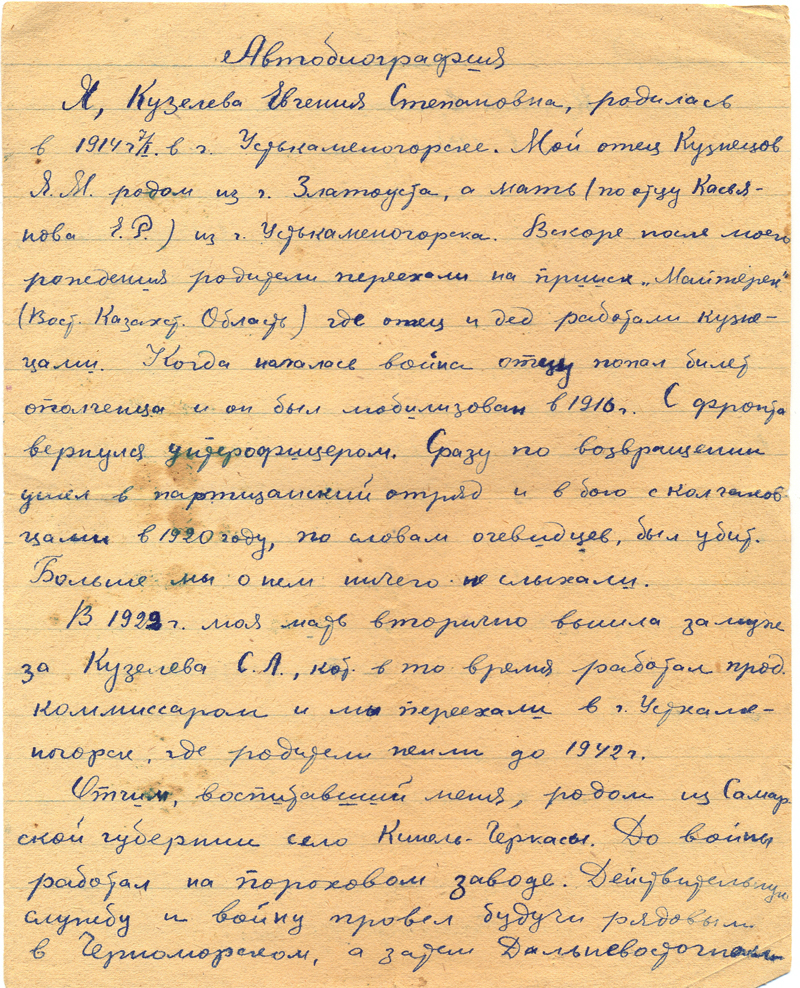 Автобиография
Я, Кузелева Евгения Степановна, родилась
в 1914 г. 7/I. в г. Устькаменогорске. Мой отец Кузнецов
Я.М. родом из г. Златоуста, а мать (по отцу Касья-
нова Е.Р.) из г. Устькаменогорска. Вскоре после моего
рождения родители переехали на прииск „Майтерек"
(Вост. Казахст. Область) где отец и дед работали кузне-
цами. Когда началась война отцу попал билет
ополченца и он был мобилизован в 1916 г. С фронта
вернулся унтерофицером. Сразу по возвращении
ушел в партизанский отряд и в бою с колчаков
цами в 1920 году, по словам очевидцев, был убит.
Больше мы о нем ничего не слыхали.
В 1922 г. моя мать вторично вышла замуж
за Кузелева С.А., кот. в то время работал прод.
коммиссаром и мы переехали в г. Усткаме-
ногорск, где родители жили до 1942 г.
Отчим, воспитавший меня, родом из Самар
ской губернии село Кинель-Черкасы. До войны
работал на пороховом заводе. Действительную
службу и войну провел будучи рядовым
в Черноморском, а затем Дальневосточном